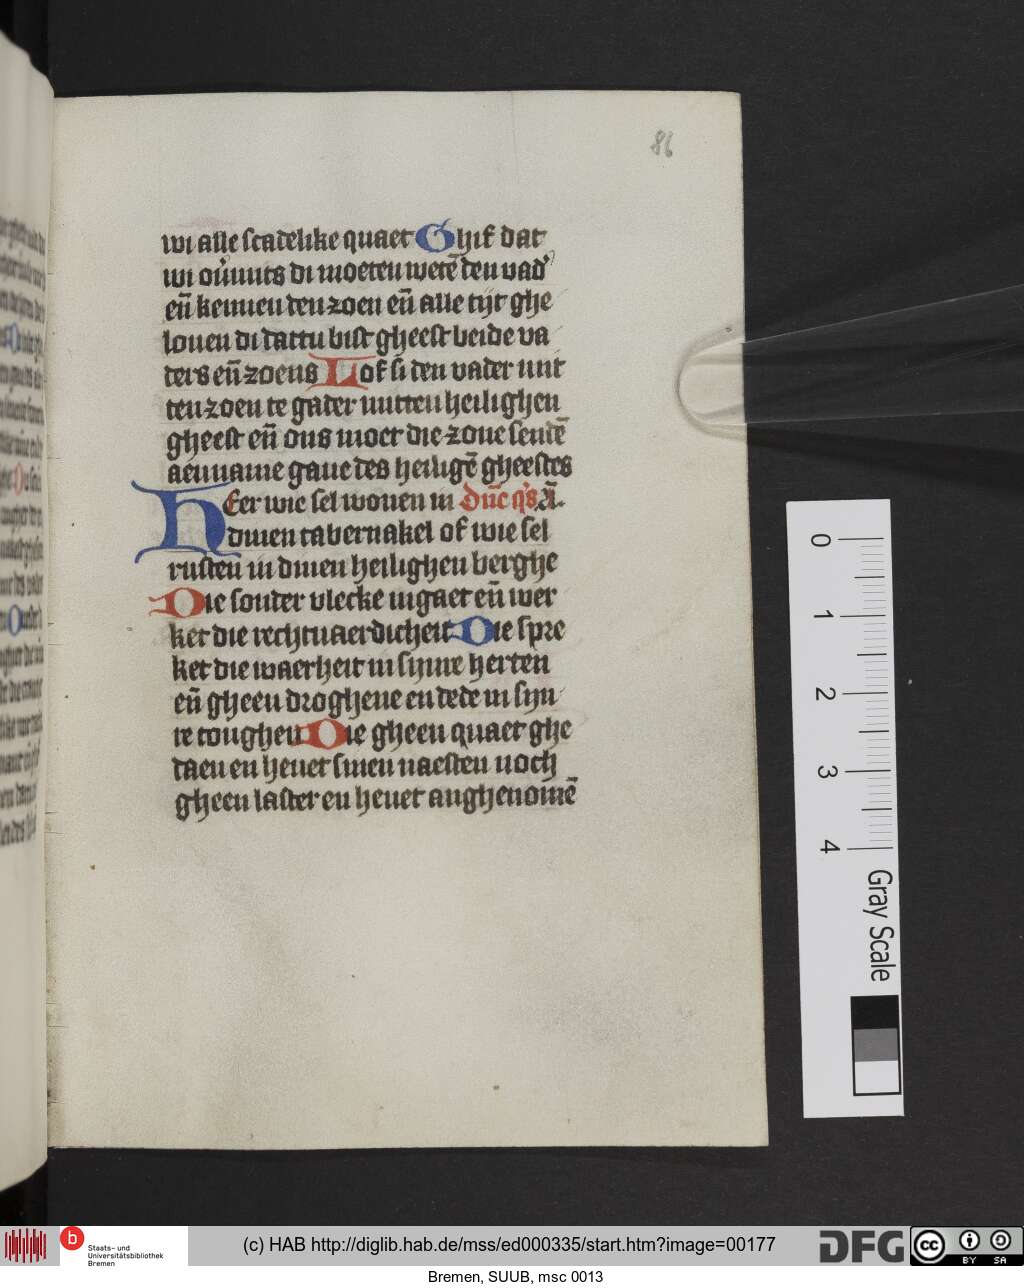 86
wi alle scadelike quaet Ghif dat
wi ouͥmits di moeten wetē den vad'
eñ kennen den zoen eñ alle tijt ghe
louen di dattu bist gheest beide va
ders eñ zoens Lof si den vader mit
ten zoen te gader mitten heilighen
gheest eñ ons moet die zone sendē
aenname gaue des heiligē gheestes
HEer wie sel wonen in Dñe q's.ā.
dinen tabernakel of wie sel
rusten in dinen heilighen berghe
Die sonder vlecke ingaet eñ wer
ket die rechtuaerdicheit Die spre
ket die waerheit in sijnre herten
eñ gheen droghene en dede in sijn
re tonghen Die gheen quaet ghe
daen en heuet sinen naesten noch
gheen laster en heuet anghenomē
0
1
2
3
4
Gray Scale
b Staats- und
Universitätsbibliothek
Bremen
(c) HAB http://diglib.hab.de/mss/ed000335/start.htm?image=00177
DFG
cc BY SA
Bremen, SUUB, msc 0013